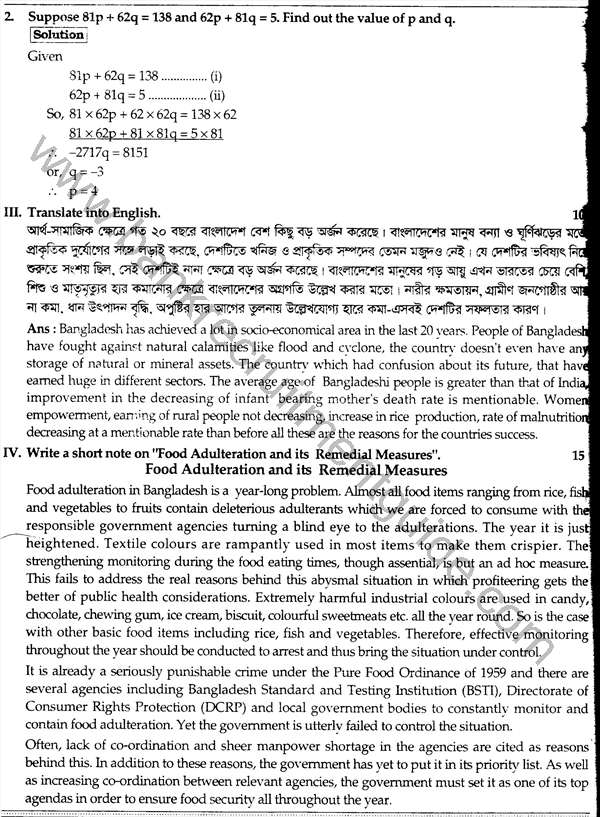 2. Suppose 81p + 62q = 138 and 62p + 81q = 5. Find out the value of p and q.
Solution
Given
81p + 62q = 138 ............... (i)
62p + 81q = 5 ................... (ii)
So, 81 × 62p + 62 × 62q = 138 × 62
81 × 62p + 81 × 81q = 5 × 81
∴ –2717q = 8151
or, q = –3
∴ p = 4
III. Translate into English. 10
আর্থ-সামাজিক ক্ষেত্রে গত ২০ বছরে বাংলাদেশ বেশ কিছু বড় অর্জন করেছে। বাংলাদেশের মানুষ বন্যা ও ঘূর্ণিঝড়ের মতো
প্রাকৃতিক দুর্যোগের সঙ্গে লড়াই করছে, দেশটিতে খনিজ ও প্রাকৃতিক সম্পদের তেমন মজুদও নেই। যে দেশটির ভবিষ্যৎ নিয়ে
শুরুতে সংশয় ছিল, সেই দেশটিই নানা ক্ষেত্রে বড় অর্জন করেছে। বাংলাদেশের মানুষের গড় আয়ু এখন ভারতের চেয়ে বেশি,
শিশু ও মাতৃমৃত্যুর হার কমানোর ক্ষেত্রে বাংলাদেশের অগ্রগতি উল্লেখ করার মতো। নারীর ক্ষমতায়ন, গ্রামীণ জনগোষ্ঠীর আয়
না কমা, ধান উৎপাদন বৃদ্ধি, অপুষ্টির হার আগের তুলনায় উল্লেখযোগ্য হারে কমা-এসবই দেশটির সফলতার কারণ।
Ans : Bangladesh has achieved a lot in socio-economical area in the last 20 years. People of Bangladesh
have fought against natural calamities like flood and cyclone, the country doesn't even have any
storage of natural or mineral assets. The country which had confusion about its future, that have
earned huge in different sectors. The average age of Bangladeshi people is greater than that of India,
improvement in the decreasing of infant bearing mother's death rate is mentionable. Women
empowerment, earning of rural people not decreasing, increase in rice production, rate of malnutrition
decreasing at a mentionable rate than before all these are the reasons for the countries success.
IV. Write a short note on "Food Adulteration and its Remedial Measures". 15
Food Adulteration and its Remedial Measures
Food adulteration in Bangladesh is a year-long problem. Almost all food items ranging from rice, fish
and vegetables to fruits contain deleterious adulterants which we are forced to consume with the
responsible government agencies turning a blind eye to the adulterations. The year it is just
heightened. Textile colours are rampantly used in most items to make them crispier. The
strengthening monitoring during the food eating times, though assential, is but an ad hoc measure.
This fails to address the real reasons behind this abysmal situation in which profiteering gets the
better of public health considerations. Extremely harmful industrial colours are used in candy,
chocolate, chewing gum, ice cream, biscuit, colourful sweetmeats etc. all the year round. So is the case
with other basic food items including rice, fish and vegetables. Therefore, effective monitoring
throughout the year should be conducted to arrest and thus bring the situation under control.
It is already a seriously punishable crime under the Pure Food Ordinance of 1959 and there are
several agencies including Bangladesh Standard and Testing Institution (BSTI), Directorate of
Consumer Rights Protection (DCRP) and local government bodies to constantly monitor and
contain food adulteration. Yet the government is utterly failed to control the situation.
Often, lack of co-ordination and sheer manpower shortage in the agencies are cited as reasons
behind this. In addition to these reasons, the government has yet to put it in its priority list. As well
as increasing co-ordination between relevant agencies, the government must set it as one of its top
agendas in order to ensure food security all throughout the year.